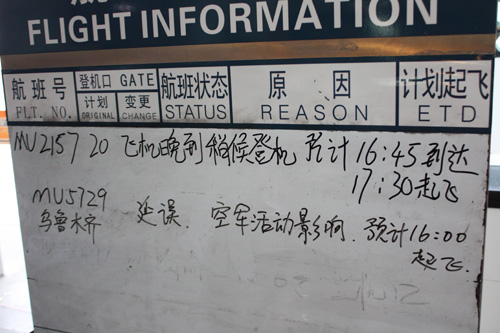 FLIGHT INFORMATION
航班号 登机口 GATE 航班状态 原因 计划起飞
FLT. NO. 计划 ORIGINAL 变更 CHANGE STATUS REASON ETD
MU2157 20 飞机晚到 稍候登机 预计 16:45到达
17:30起飞
MU5729
乌鲁木齐 延误. 空军活动影响. 预计16:00
起飞.